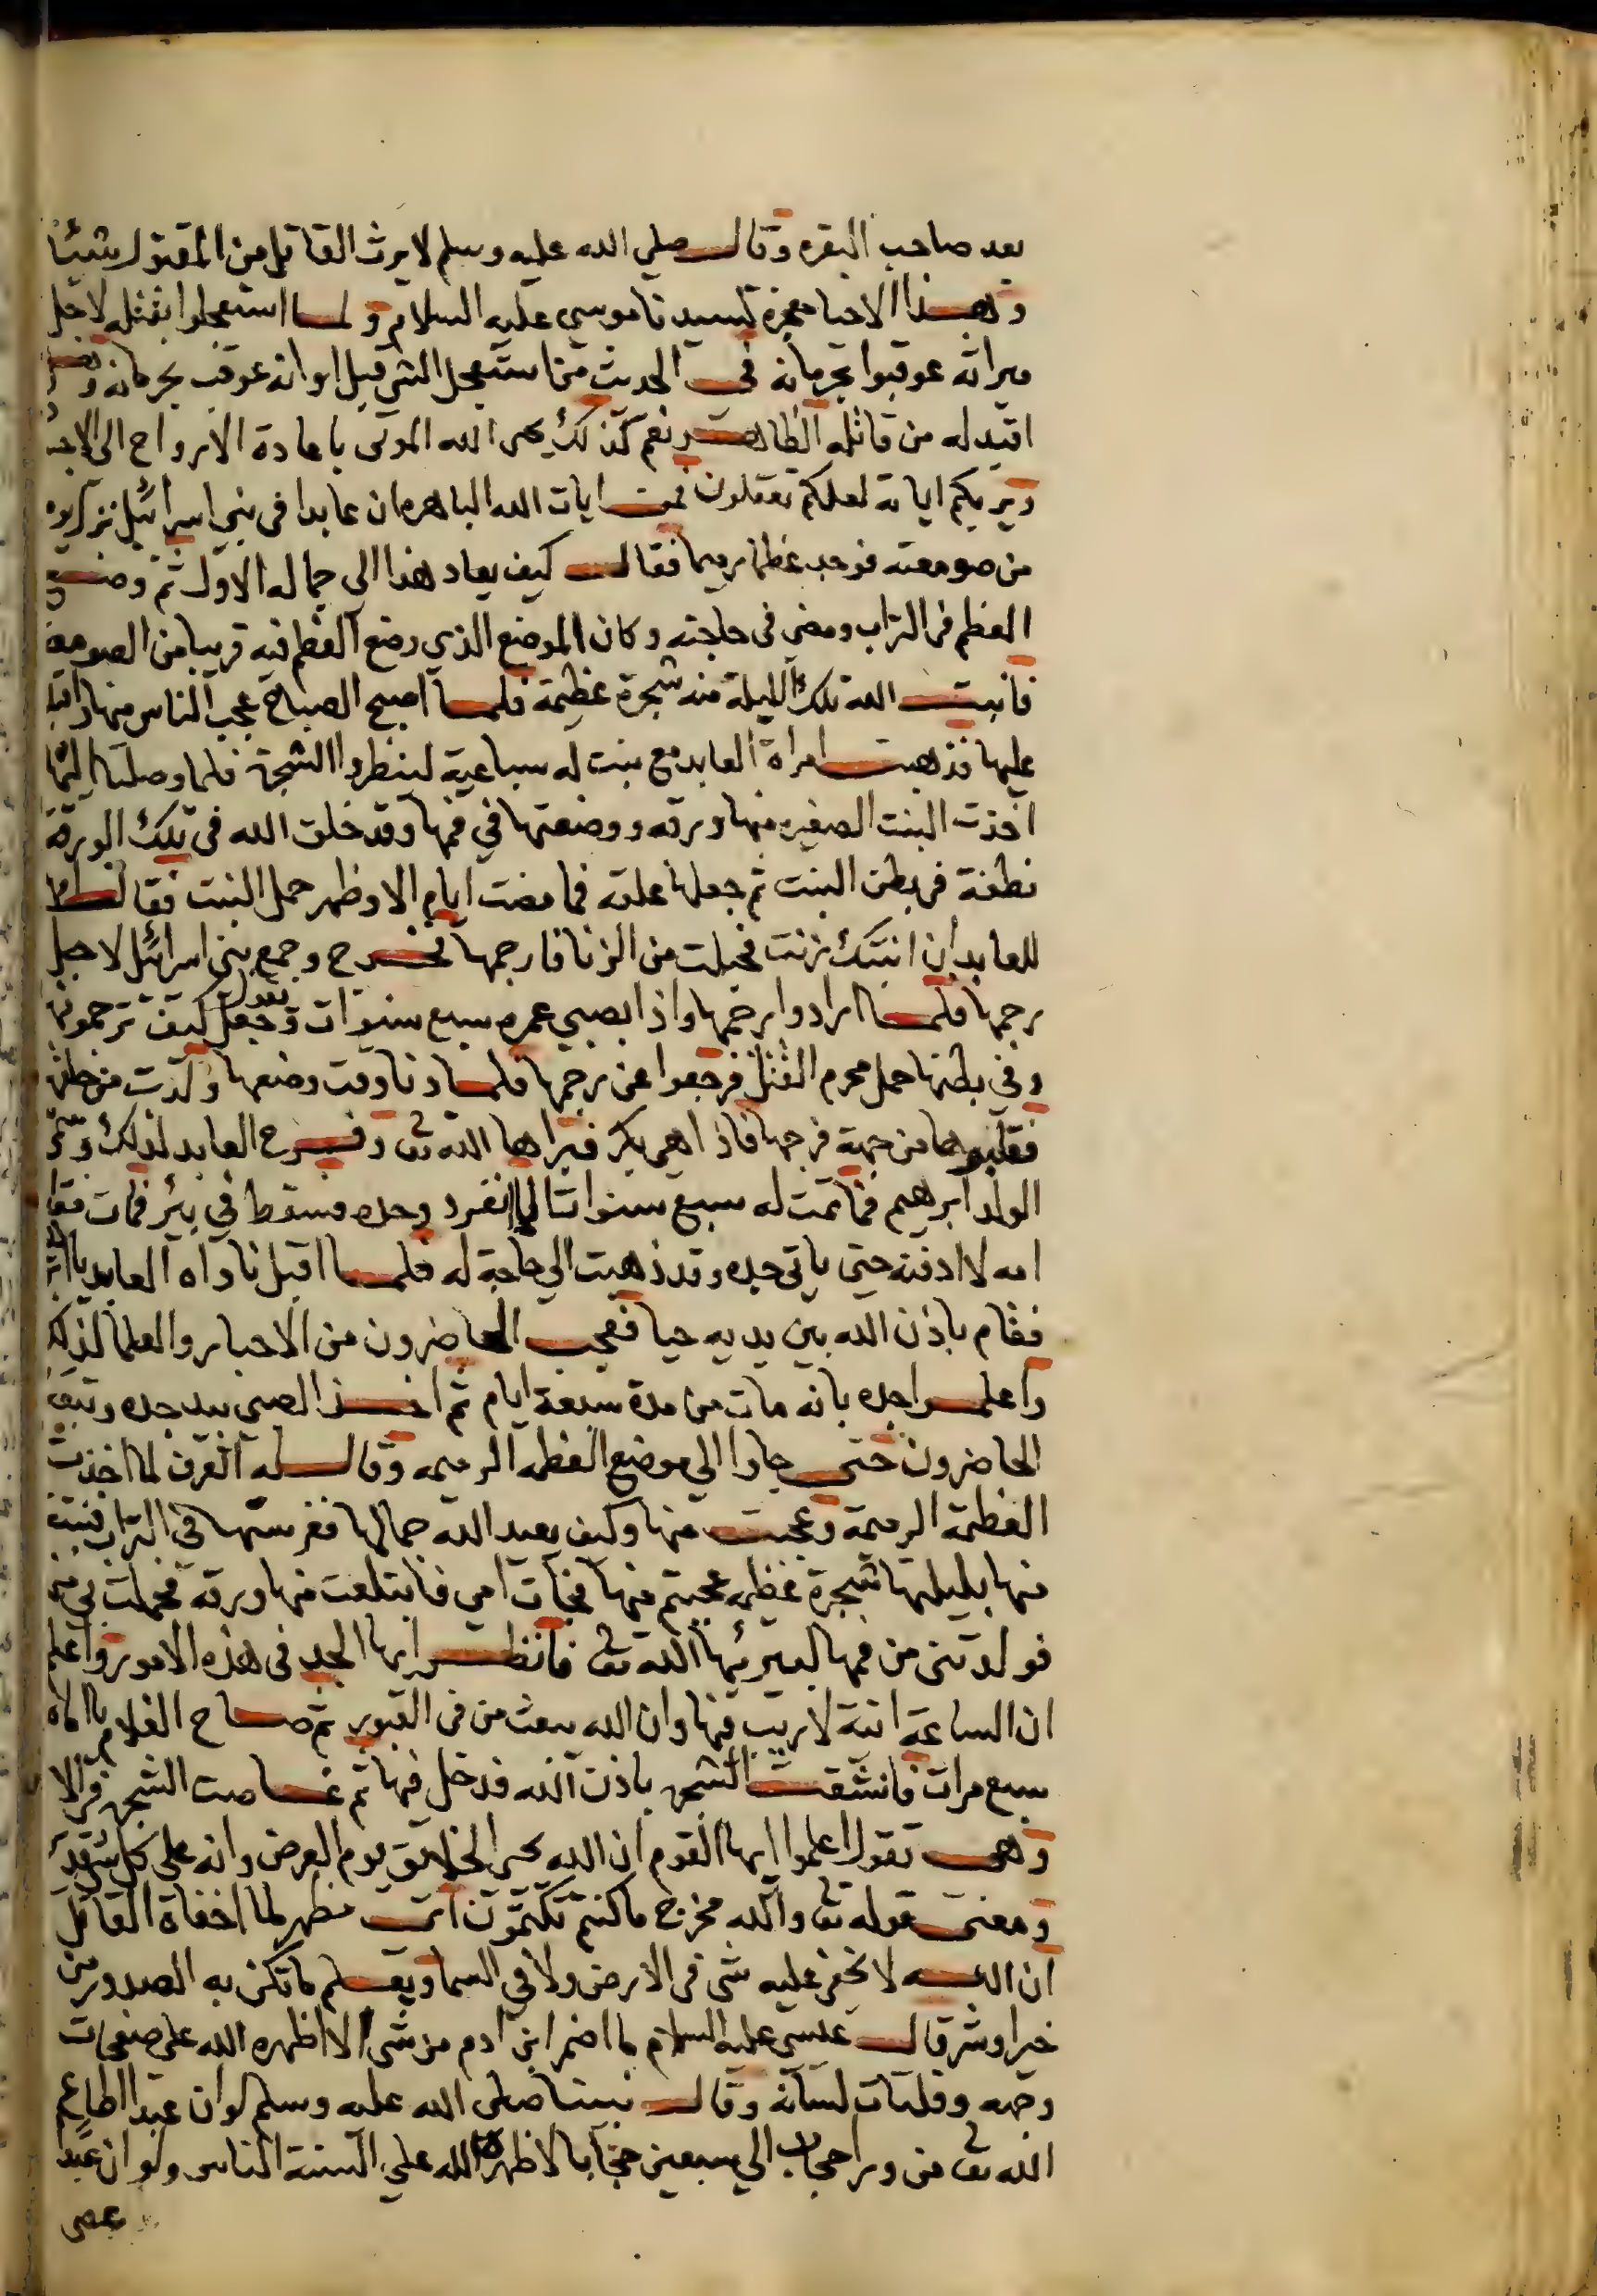 بعد صاحب البقره وقال صلي الله عليه وسلم لا يرث القاتل من المقتول شيئا
وهذا الاحيا معجزة لسيدنا موسي عليه السلام ولما استعجلوا بقتله لاجل
ميراثه عوقبوا بحرمانه في الحديث من استعجل الشي قبل اوانه عوقب بحرمانه
اقيد له من قاتله الظاهر نعم كذلك يحى الله الموتى باعادة الارواح الى
ويريكم اياته لعلكم تعقلون فمن ايات الله الباهره ان عابدا فى بني اسرائيل نزل يوم
من صومعته فوجد عظما رميما فقال كيف يعاد هذا الى جماله الاول ثم وضع
العظم فى التراب ومضى فى حاجته وكان الموضع الذي وضع العظم فيه قريبا من الصومعه
فانبت الله تلك الليلة منه شجرة عظيمة فلما اصبح الصباح عجب الناس منها
عليها فذهبت امراة العابد مع بنت له سباعية لينظروا الشجرة فلما وصلتا اليها
اخذت البنت الصغيره منها ورقه ووضعتها في فمها وقد خلق الله فى تلك الورقة
نطفة فى بطن البنت ثم جعلها علقه فما مضت ايام الا وظهر حمل البنت فقالوا
للعابد ان ابنتك زنت فحبلت من الزنا فارجمها فخرج وجمع بني اسرائيل لاجل
رجمها فلما ارادوا رجمها واذا بصبي عمره سبع سنوات وجعل يقول كيف ترجمونها
وفي بطنها حمل محرم القتل فرجعوا عن رجمها فلما دنا وقت وضعها ولدت من
فقلبوها من جهة فرجها فاذا هى بكر فبراها الله تعالى وفرح العابد لذلك وسمى
الولد ابرهيم فما تمت له سبع سنوات انفرد وحده فسقط في بئر فمات فقا
امه لا ادفنه حتى ياتى جده وقد ذهبت الي حاجة له فلما اقبل ناداه العابد
فقام باذن الله بين يديه حيا فعجب الحاضرون من الاحبار والعلما لذلك
واعلموا جده بانه مات من مدة سبعة ايام ثم اخذ الصبي بيد جده وتبعه
الحاضرون حتى جاوا الي موضع العظمه الرميمه وقال له اتعرف لما اخذت
العظمة الرميمة وعجبت منها وكيف يعيد الله جمالها فغرستها في التراب فنبتت
منها بليلتها شجرة عظيمه عجبتم منها فجات امي فابتلعت منها ورقه فحملت بي منه
فولدتنى من فمها ليبريها الله تعالى فانظر ايها الجد فى هذه الامور واعلم
ان الساعة اتية لا ريب فيها وان الله يبعث من فى القبور ثم صاح الغلام
سبع مرات فانشقت الشجره باذن الله فدخل فيها ثم غاصت الشجره فى الا
وهى تقول اعلموا ايها القوم ان الله يحى الخلايق يوم العرض وانه على كل شى قدير
ومعنى قوله تعالى والله مخرج ما كنتم تكتمون اى مظهر لما اخفاه القاتل
ان الله لا يخفى عليه شى فى الارض ولا في السما ويعلم ما تكن به الصدور من
خير او شر قال عيسي عليه السلام ما اضمر ابن ادم من شى الا اظهره الله على صفحات
وجهه وفلتات لسانه وقال نبينا صلى الله عليه وسلم لو ان عبدا اطاع
الله تعالى من ورا حجاب الي سبعين حجابا لاظهره الله علي السنة الناس ولو ان عبد
عصى